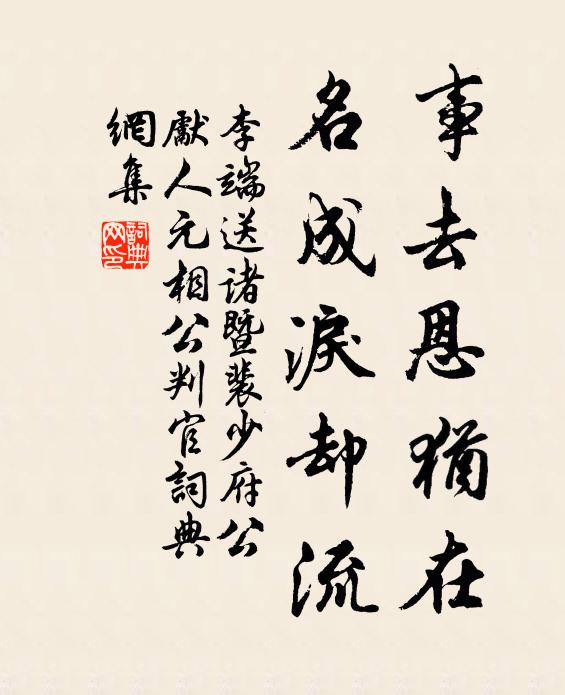 事去恩猶在
名成淚却流
李端送諸暨裴少府公
獻人元相公判官詞典
網集
詞典
网印